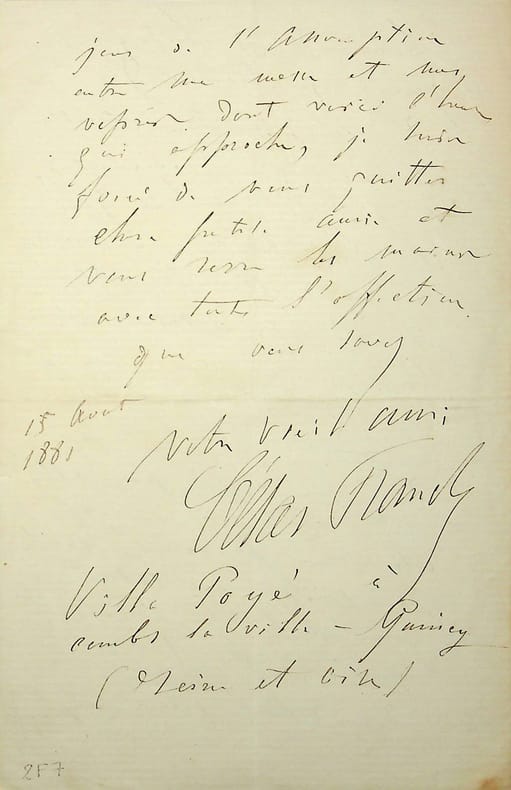 jour de l'Assomption
entre une messe et mes
vêpres dont voici l'heure
qui approche, je suis
forcé de vous quitter
chère petite amie et
vous serre les mains
avec toute l'affection
que vous savez
15 Aout
1881
Votre vieil ami
César Franck
Villa Poyé à
combs la ville – Quincy
(Seine et Oise)
2F7